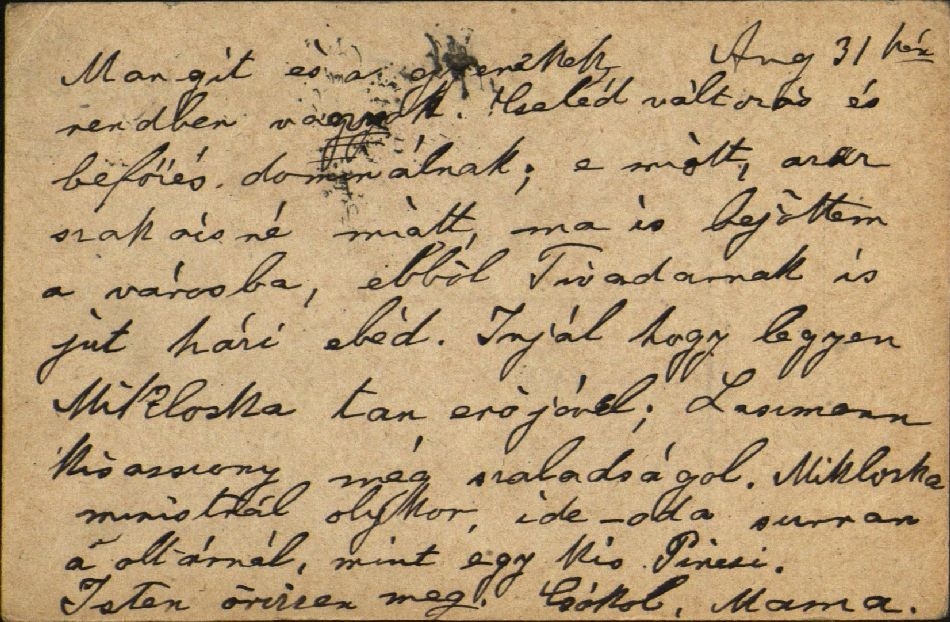 Aug 31 kén
Mangit és a gyerekek
rendben vagytok. Cseléd változás és
befőzés dominálnak; e miatt, azaz
szakácsné miatt, ma is bejöttem
a városba, ebből Tivadarnak is
jut házi ebéd. Irjál hogy legyen
Mikloska tan erőjével;
Kisasszony még szaladságol. Mikloska
ministrál olykor, ide-oda surran
a oltárnál, mint egy kis Pinczi.
Isten őrizzen meg. Csókol, Mama.